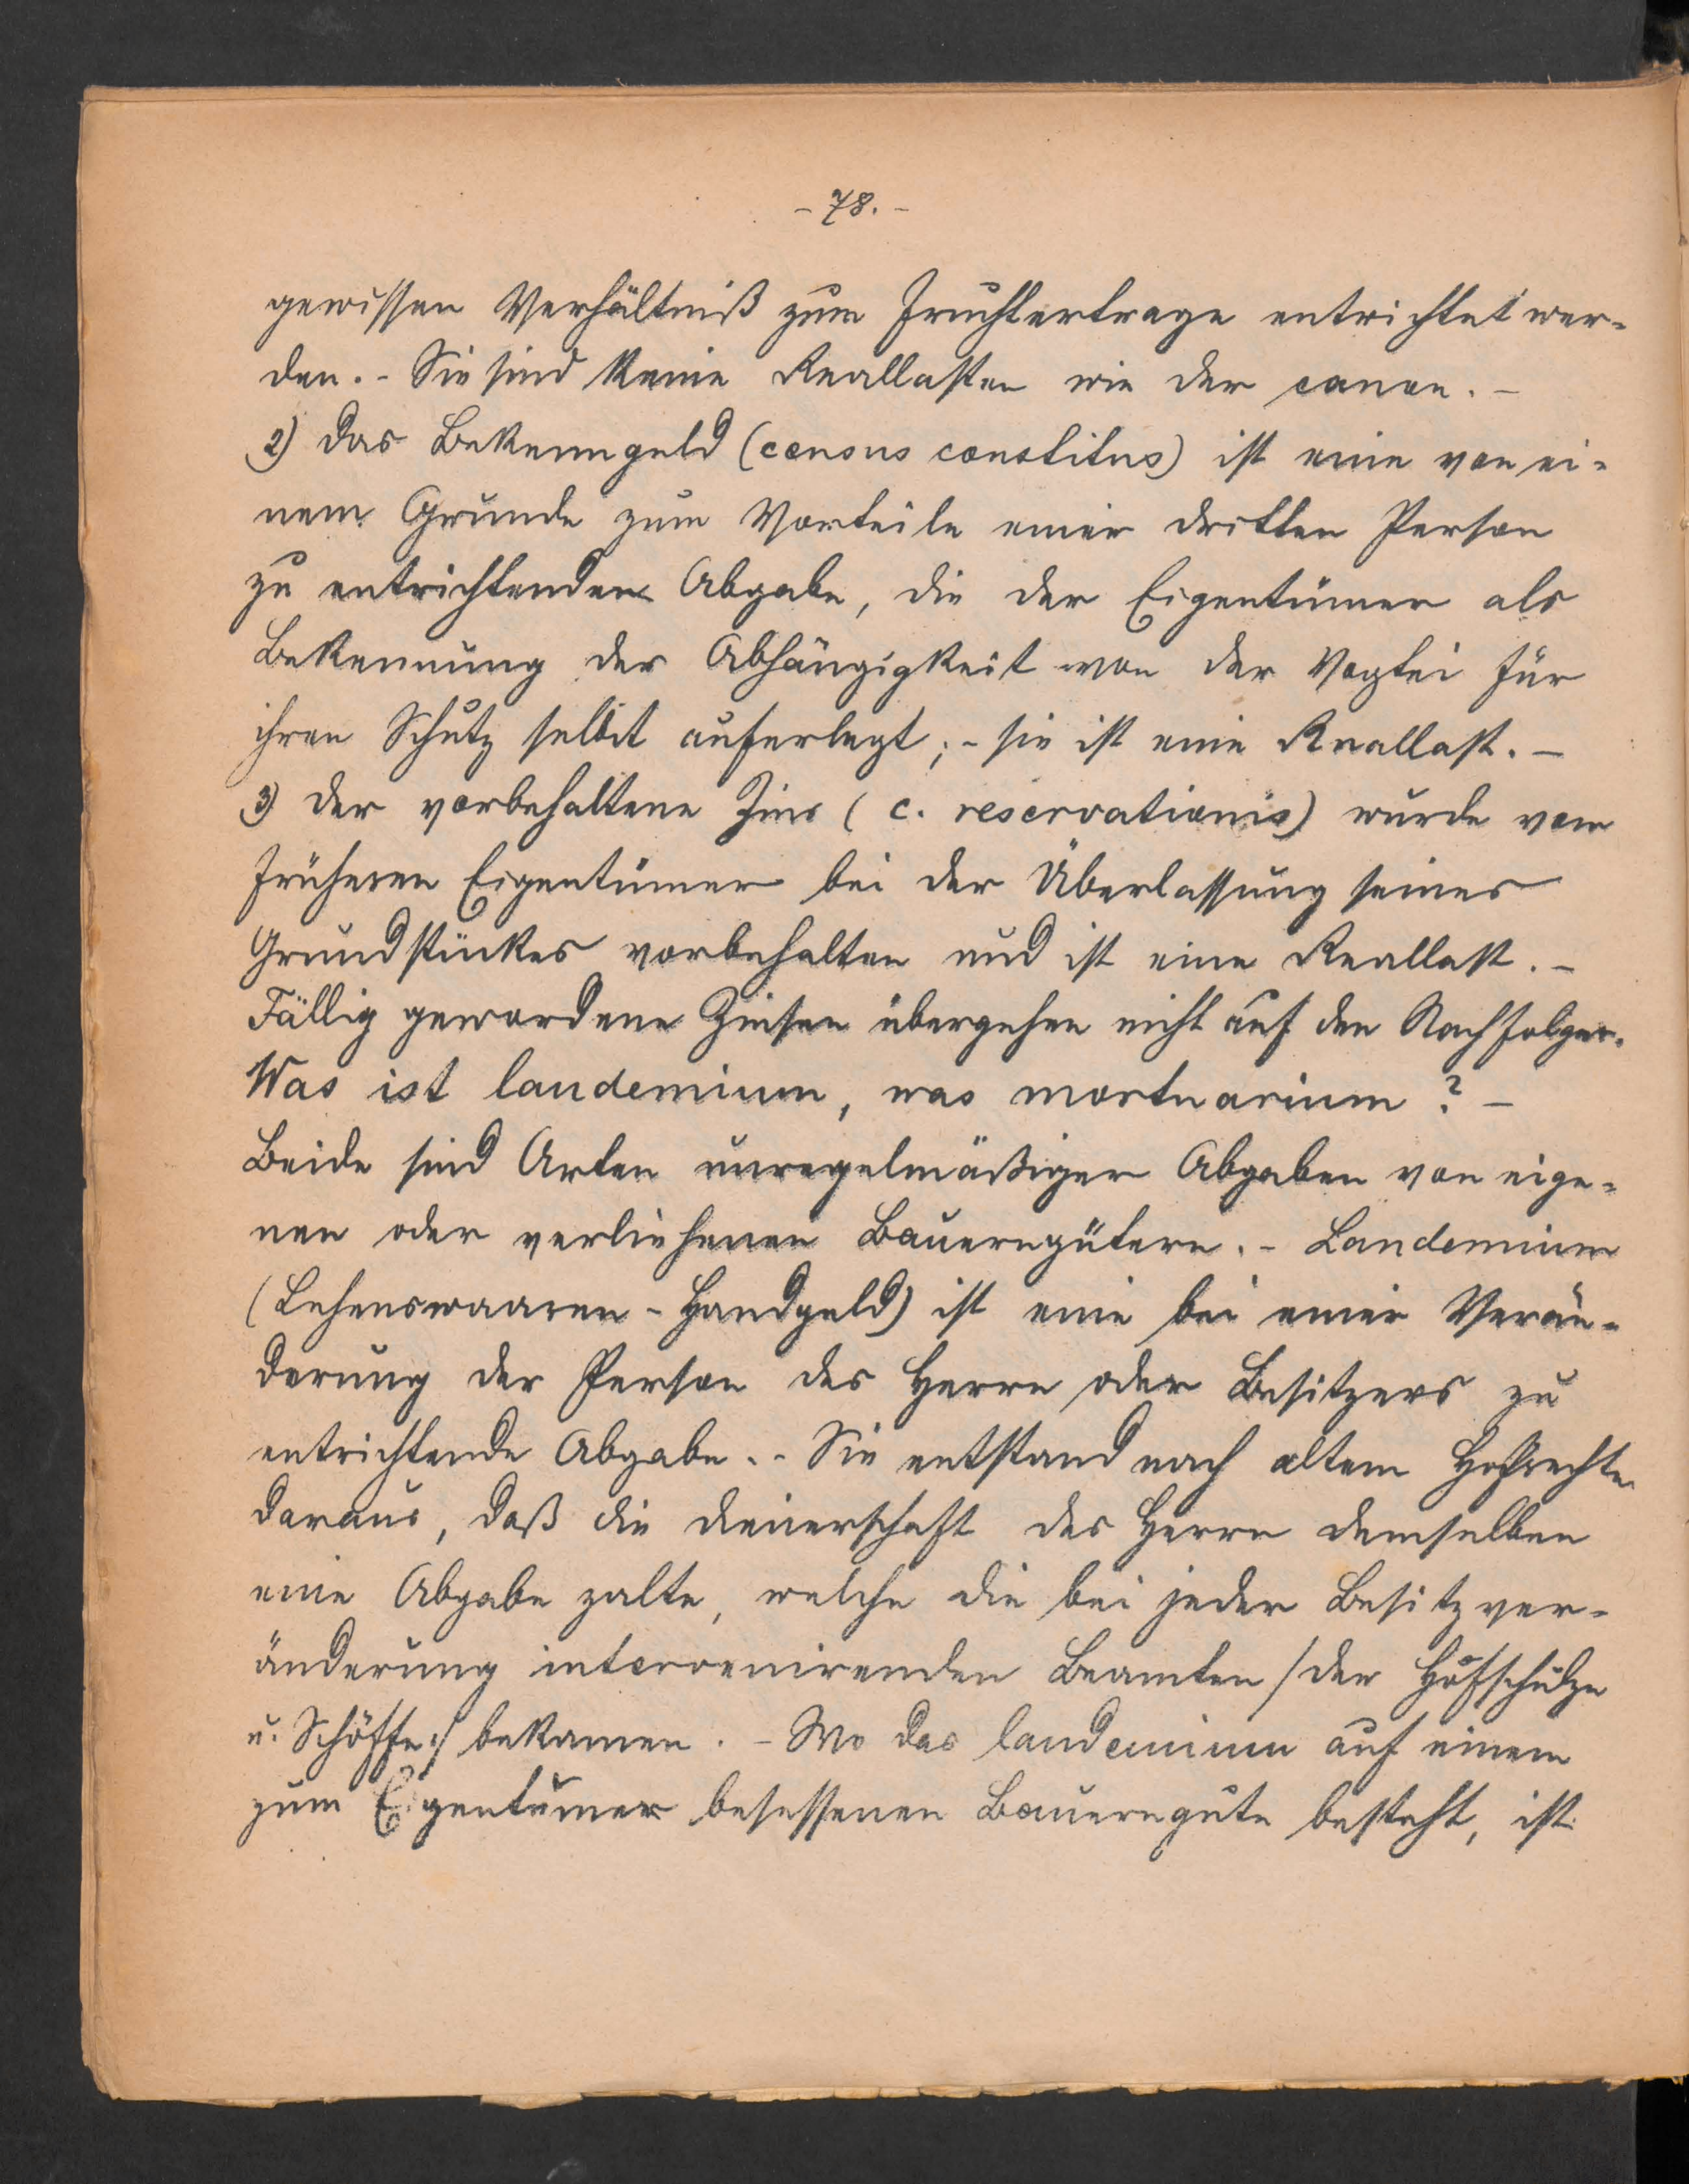 - 78. -
gewissen Verhältniß zum Fruchtertrage entrichtet wer-
den. - Sie sind keine Reallasten wie der canon. -
2) Das Bekenngeld (census constitus) ist eine von ei-
nem Grunde zum Vorteile einer dritten Person
zu entrichtenden Abgabe, die der Eigentümer als
Bekennung der Abhängigkeit von der Vogtei für
ihren Schutz selbst auferlegt; - sie ist eine Reallast. -
3) Der vorbehaltene Zins ( c. reservationis) wurde vom
früheren Eigentümer bei der Überlassung seines
Grundstückes vorbehalten und ist eine Reallast. -
Fällig gewordene Zinsen übergehen nicht auf den Nachfolger.
Was ist laudemium, was mortuarium ? -
Beide sind Arten unregelmäßiger Abgaben von eige-
nen oder verliehenen Bauerngütern. - Laudemium
(Lehenswaaren - Handgeld) ist eine bei einer Verän-
derung der Person des Herrn oder Besitzers zu
entrichtende Abgabe. - Sie entstand nach altem Hofrechte
daraus, daß die Dienerschaft des Herrn demselben
eine Abgabe zalte, welche die bei jeder Besitzver-
änderung intervenirenden Beamten /der Hofschulze
u. Schöffe:/ bekamen. - Wo das laudemium auf einem
zum Eigentümer besessenen Bauerngute besteht, ist